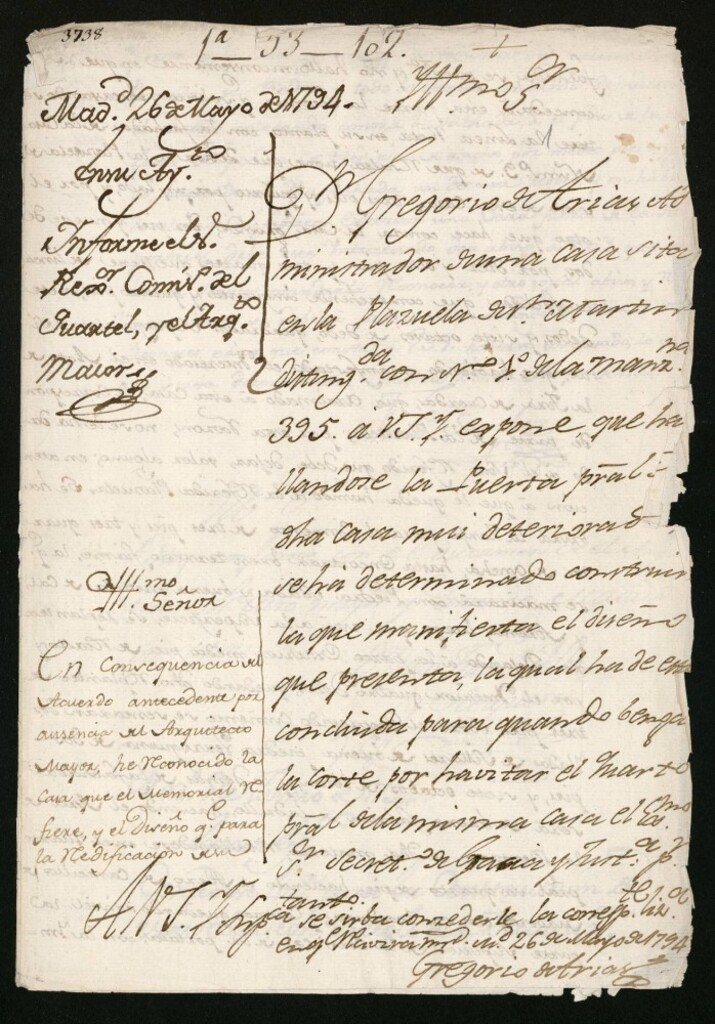 3738
1ª 53—102.
Mad.d 26 de Mayo de 1794.
Yll.mo S.or
1
En su Ay.to
Informe el S.r
Rex.or Comis.o del
Quartel, y el Arq.to
Maior
D.n Gregorio de Arias Ad
ministrador de una casa sita
en la Plazuela de S.n Martin
disting.da con N.o 1.o de la manz.na
395. á V.S.Y. expone que ha
llandose la Puerta pral
dha casa mui deteriorad
se ha determinado construir
la que manifiesta el diseño
que presenta, la qual ha de est
concluida para quando benga
la corte por havitar el quarto
pral de la misma casa el Ex.mo
S.r Secret.o de Gracia y Just.a p.r
tanto.
A V.S.Y. sup.ca se sirba concederle la corresp.te liz.a
en q.e Reivira m.d M.d 26 de Mayo de 1794
Gregorio de Arias
Yll.mo
Señor
En Consequencia del
Acuerdo antecedente por
ausencia del Arquitecto
Mayor, he reconocido la
Casa que el Memorial re
fiere, y el Diseño q.e para
la redificacion de su